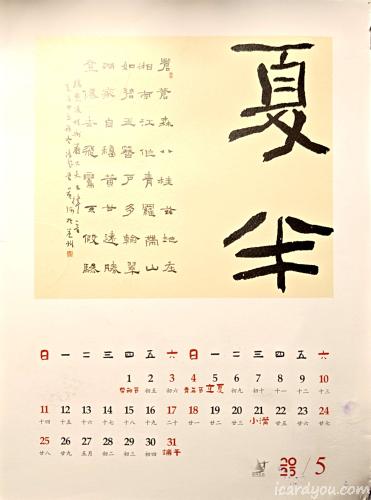 夏半
蒼蒼森八桂茲地在
湘南江作青羅帶山
如碧玉簪戶多輸翠
羽家自種黃甘遠勝
登仙去飛鸞不假驂
日 一 二 三 四 五 六 日 一 二 三 四 五 六
1 2 3 4 5 6 7 8 9 10
劳动节 初五 初六 青年节 立夏 初九 初十 十一 十二 十三
11 12 13 14 15 16 17 18 19 20 21 22 23 24
十四 十五 十六 十七 十八 十九 二十 廿一 廿二 廿三 小满 廿五 廿六 廿七
25 26 27 28 29 30 31
廿八 廿九 五月 初二 初三 初四 端午
2025 / 5
icardyou.com